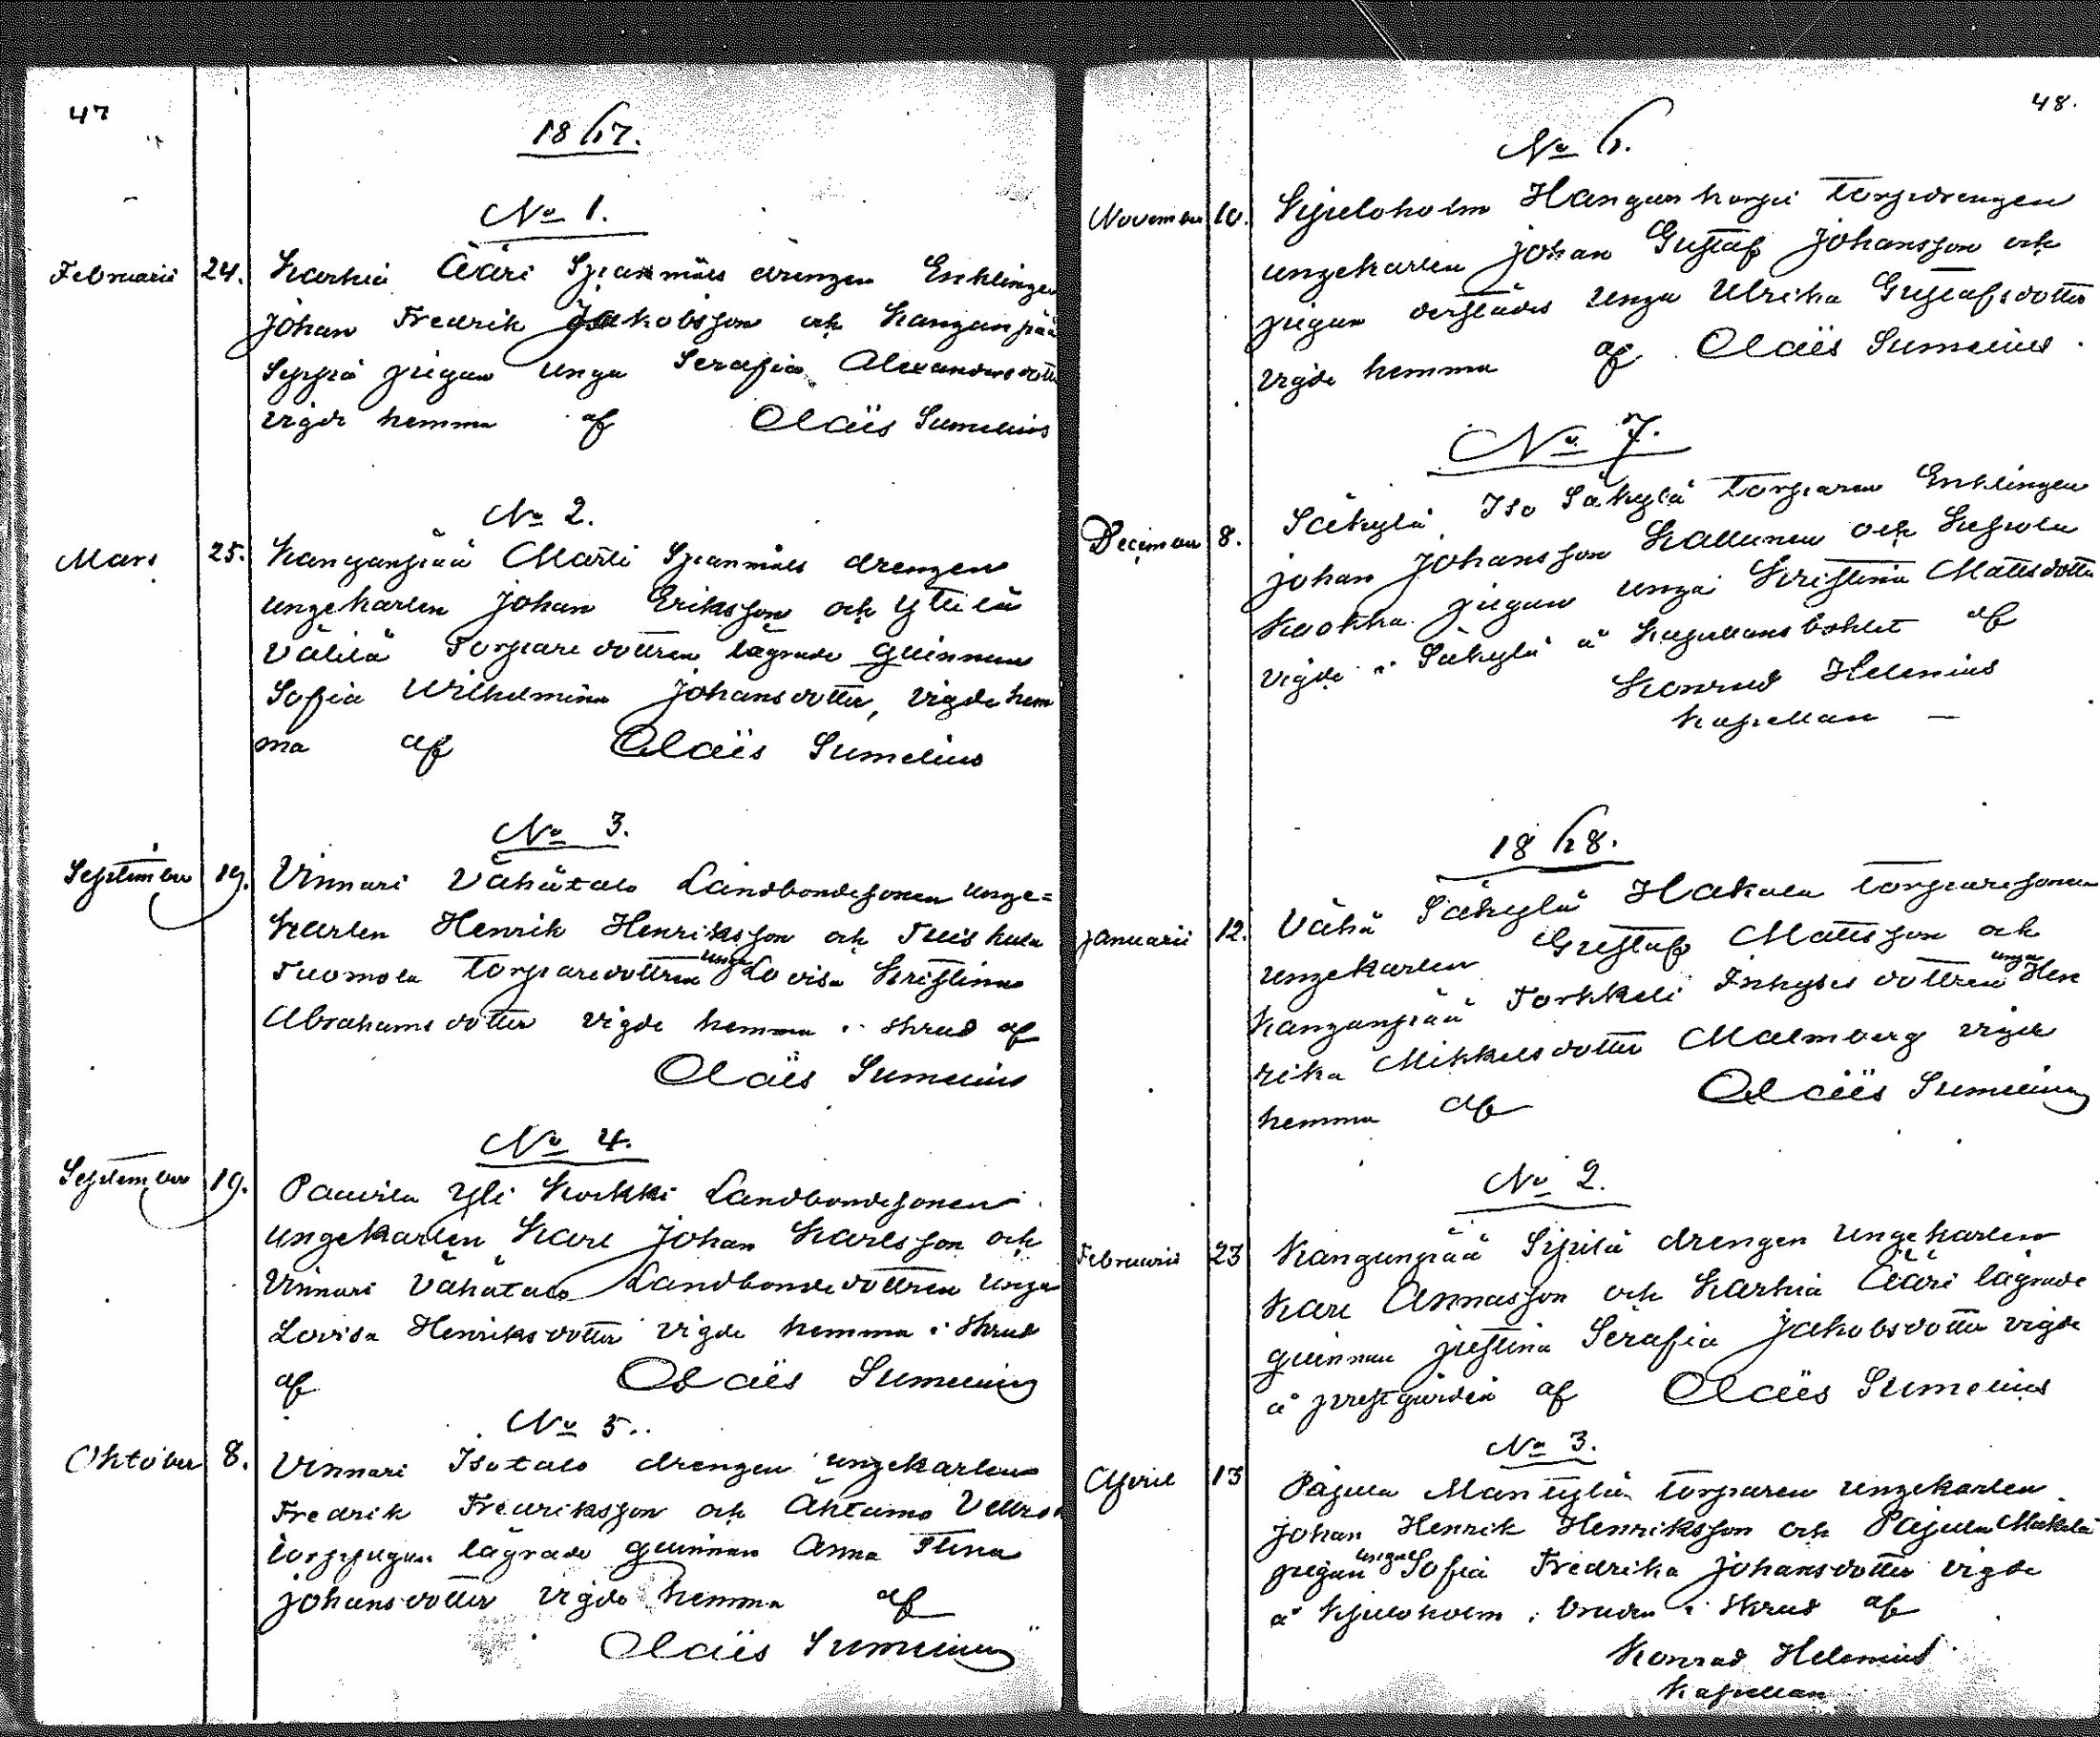 47
1867.
No 1.
Februarii 24. Karhia Ääri Spannmåls drengen Enklingen
Johan Fredrik Jakobsson och Kanganpää
Seppä pigan unga Serafia Alexandersdotter
vigde hemma af Claës Sumelius
No 2.
Mars 25. Kanganpää Martti Spannmåls drengen
ungekarlen Johan Eriksson och Yttilä
Välilä Torparedottren lägrade quinnan
Sofia Wilhelmina Johansdotter, vigde hem
ma af Claës Sumelius
No 3.
September 19. Vinnari Vähätalo Landbondesonen unge=
karlen Henrik Henriksson och Tuiskula
Tuomola Torparedottren unga Lovisa Kristina
Abrahamsdotter vigde hemma i skrud af
Claës Sumelius
No 4.
September 19. Pauvila Yli Korkki Landbondesonen
ungekarlen Karl Johan Karlsson och
Vinnari Vähätalo Landbondedottren unga
Lovisa Henriksdotter vigde hemma i skrud
af Claës Sumelius
No 5.
Oktober 8. Vinnari Isotalo drengen ungekarlen
Fredrik Fredriksson och Åhtamo
torppigan lägrade quinnan Anna Stina
Johansdotter vigde hemma af
Claës Sumelius
48.
No 6.
November 10. Kjuloholm Hangankorpi torpdrengen
ungekarlen Johan Gustaf Johansson och
pigan derstädes unga Ulrika Gustafsdotter
vigde hemma af Claës Sumelius.
No 7.
December 8. Säkylä Iso Säkylä torparen Enklingen
Johan Johansson Kallunen och Kepola
Kuokka pigan unga Kristina Mattsdotter
vigde i Säkylä å Kapellansbohlet af
Konrad Helenius
Kapellan –
1868.
Januarii 12. Vähä Säkylä Hakala torparesonen
ungekarlen Gustaf Mattsson och
Kanganpää Torkkeli Inhyses dottren unga Hen
rika Mikkelsdotter Malmberg vigde
hemma af Claës Sumelius
No 2.
Februarii 23 Kanganpää Sipilä drengen ungekarlen
Karl Annasson och Karhia Ääri lägrade
quinnan Justina Serafia Jakobsdotter vigde
å prestgården af Claës Sumelius
No 3.
April 13 Pajula Mäntylä torparen ungekarlen
Johan Henrik Henriksson och Pajula Mäkilä
pigan unga Sofia Fredrika Johansdotter vigde
å Kjuloholm, bruden i skrud af
Konrad Helenius
Kapellan